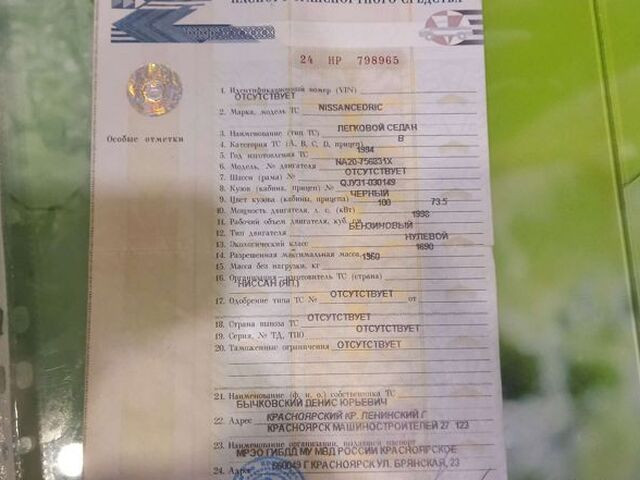 ПАСПОРТ ТРАНСПОРТНОГО СРЕДСТВА
24 НР 798965
1. Идентификационный номер (VIN)
ОТСУТСТВУЕТ
2. Марка, модель ТС NISSANCEDRIC
3. Наименование (тип ТС) ЛЕГКОВОЙ СЕДАН
4. Категория ТС (А, В, С, D, прицеп) В
5. Год изготовления ТС 1994
6. Модель, № двигателя NA20-756831X
7. Шасси (рама) № ОТСУТСТВУЕТ
8. Кузов (кабина, прицеп) № QJY31-030149
9. Цвет кузова (кабины, прицепа) ЧЕРНЫЙ
10. Мощность двигателя, л. с. (кВт) 100 73.5
11. Рабочий объем двигателя, куб. см 1998
12. Тип двигателя БЕНЗИНОВЫЙ
13. Экологический класс НУЛЕВОЙ
14. Разрешенная максимальная масса, 1690
15. Масса без нагрузки, кг 1360
16. Организация - изготовитель ТС (страна)
НИССАН (ЯП.)
17. Одобрение типа ТС № ОТСУТСТВУЕТ от
18. Страна вывоза ТС ОТСУТСТВУЕТ
19. Серия, № ТД, ТПО ОТСУТСТВУЕТ
20. Таможенные ограничения ОТСУТСТВУЕТ
Особые отметки
21. Наименование (ф. и. о.) собственника ТС
БЫЧКОВСКИЙ ДЕНИС ЮРЬЕВИЧ
22. Адрес КРАСНОЯРСКИЙ КР. ЛЕНИНСКИЙ Г
КРАСНОЯРСК МАШИНОСТРОИТЕЛЕЙ 27 123
23. Наименование организации, выдавшей паспорт
МРЭО ГИБДД МУ МВД РОССИИ КРАСНОЯРСКОЕ
24. Адрес 660049 Г КРАСНОЯРСК УЛ. БРЯНСКАЯ, 23